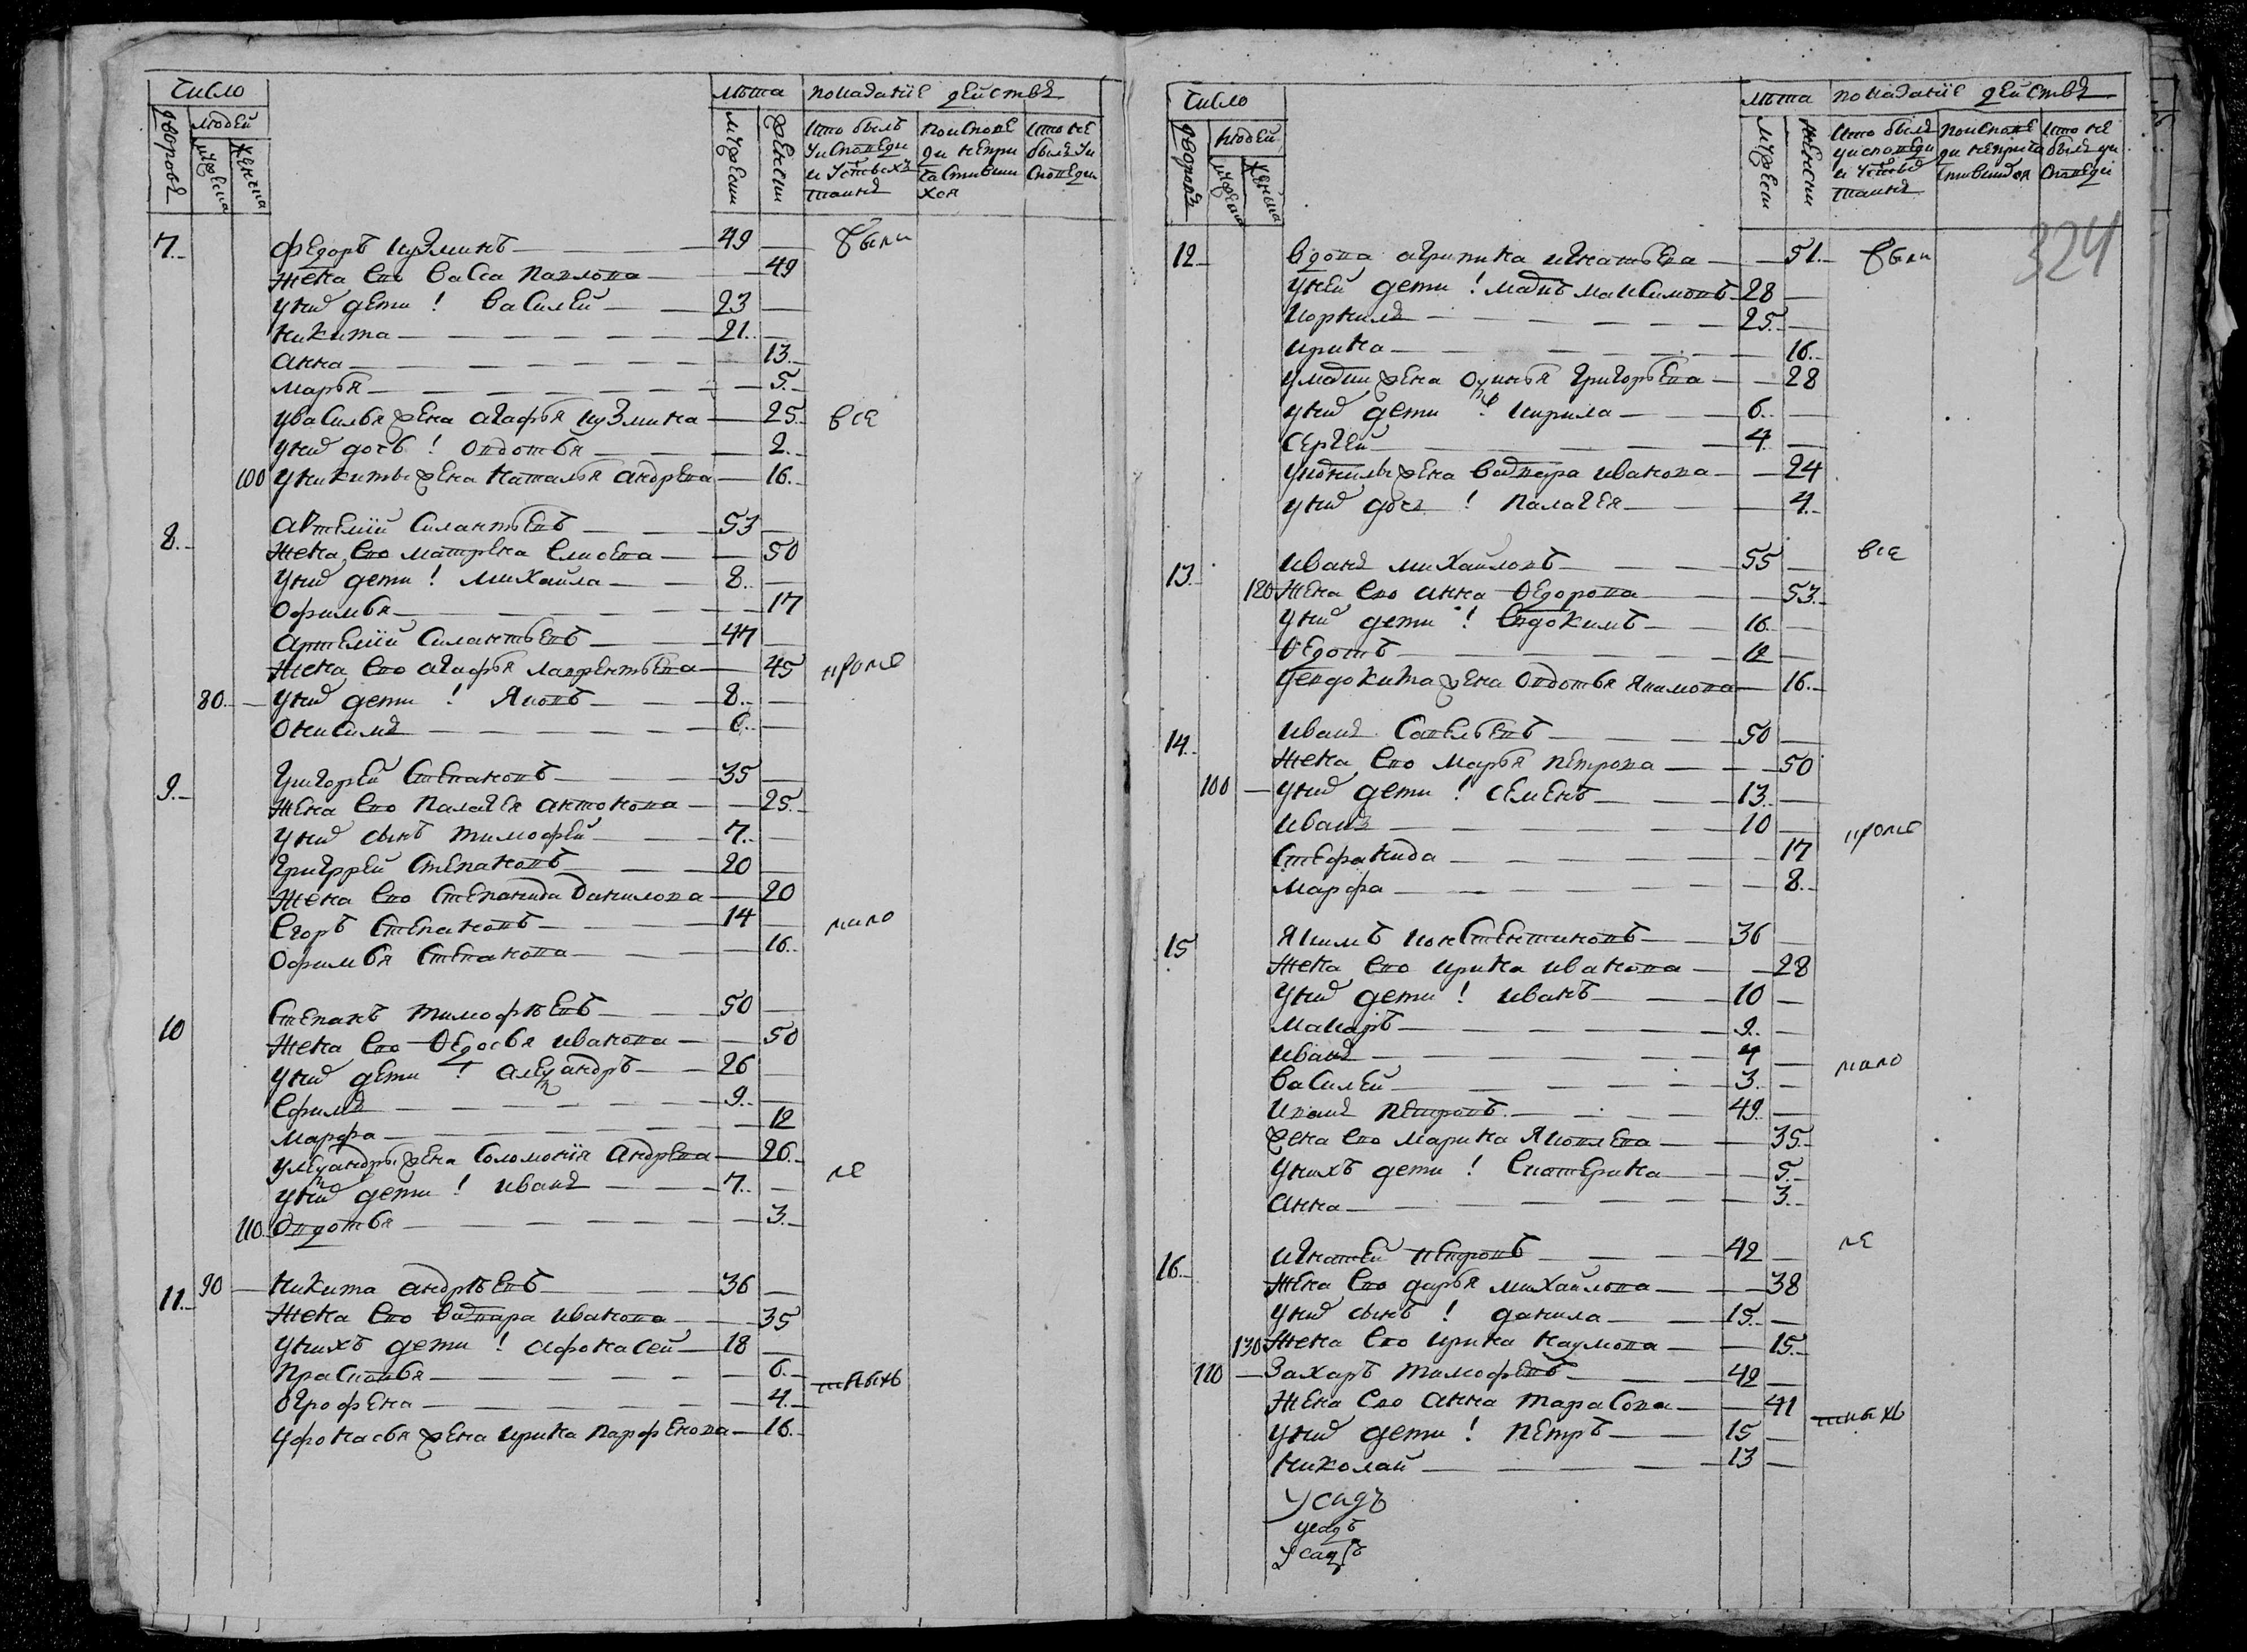 Число
лѣта показанiе действъ
дворовъ
людей
мужеска
женска
мужеск
женски
кто былъ у исповеди и у святыхъ таинъ
по исповеди не причастившихся
кто не былъ у исповеди
7. Федоръ кузминъ 49 были
жена ево васса павлова 49
у них дети ! василей 23
никита 21.
анна 13.
марья 5.
у василья жена агафья кузмина 25. все
у них дочь ! овдотья 2.
100 у никиты жена наталья андрева 16.
8. артемiй силантьевъ 53
жена ево матрена елисева 50
у них дети ! михайла 8.
офимья 17
артемiй силантьевъ 47
жена ево агафья лаврентьева 45 кроме
80. у них дети ! яковъ 8.
онисимъ 6.
9. григорей степановъ 35
жена ево палагея антонова 25.
у них сынъ тимофей 7.
григррей степановъ 20
жена ево степанида данилова 20
егоръ степановъ 14 мало
офимья степанова 16.
10 степанъ тимофѣевъ 50
жена ево федосья иванова 50
у них дети ! алеѯандръ 26
ефимъ 9.
марфа 12
у алеѯандры жена соломонiя андрева 26. ле
у них дети ! иванъ 7.
110. овдотья 3.
11. 90 никита андрѣевъ 36
жена ево варвара иванова 35
у нихъ дети ! афонасей 18
прасковья 6. тныхъ
огрофена 4.
у афонасья жена ирина парфенова 16.
324
Число
лѣта показанiе действъ
дворовъ
людей
мужеска
женска
мужеск
женски
кто былъ у исповеди и у святыхъ таинъ
по исповеди не причастившихся
кто не былъ у исповеди
12 вдова агрипина игнатьева 51. были
у ней дети ! мадвѣ максимовъ 28
корнилъ 25.
ирина 16.
у мадвѣ жена оѯинья григорьева 28
у них дети ! кирила 6.
сергей 4
у корнилы жена варвара иванова 24
у них дочь ! палагея 4.
13. иванъ михайловъ 55 все
120 жена ево анна федорова 53.
у них дети ! евдокимъ 16.
федотъ 12
у евдокима жена овдотья якимова 16.
14. иванъ савельевъ 50
жена ево марья петрова 50
100 у них дети ! семенъ 13.
иванъ 10 кроме
стефанида 17
марфа 8.
15 якимъ констентиновъ 36
жена ево ирина иванова 28
у них дети ! иванъ 10
макаръ 9.
иванъ 4 мало
василей 3.
иванъ петровъ 49.
жена ево марина яковлева 35.
у нихъ дети ! екатерина 5.
анна 3.
16. игнатей петровъ 42 ле
жена ево дарья михайлова 38
у них сынъ ! данила 15.
130 жена ево ирина наумова 15.
110 захаръ тимофеевъ 42
жена ево анна тарасова 41 тныхъ
у них дети ! петръ 15
николай 13
усадъ
усадъ
усадъ